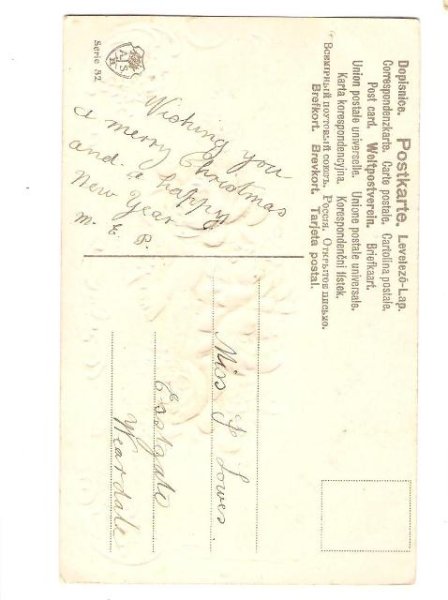 Dopisnice. Postkarte. Levelező-Lap.
Correspondenzkarte. Carte postale. Cartolina postale.
Post card. Weltpostverein. Briefkaart.
Union postale universelle. Unione postale universale.
Karta korespondencyjna. Korespondenční lístek.
Всемірный почтовый союзъ. Россія. Открытое письмо.
Brefkort. Brevkort. Tarjeta postal.
Wishing you
a merry Christmas
and a happy
New Year
M. E. P.
Miss J Lowes
Eastgate
Weardale
Serie 32.